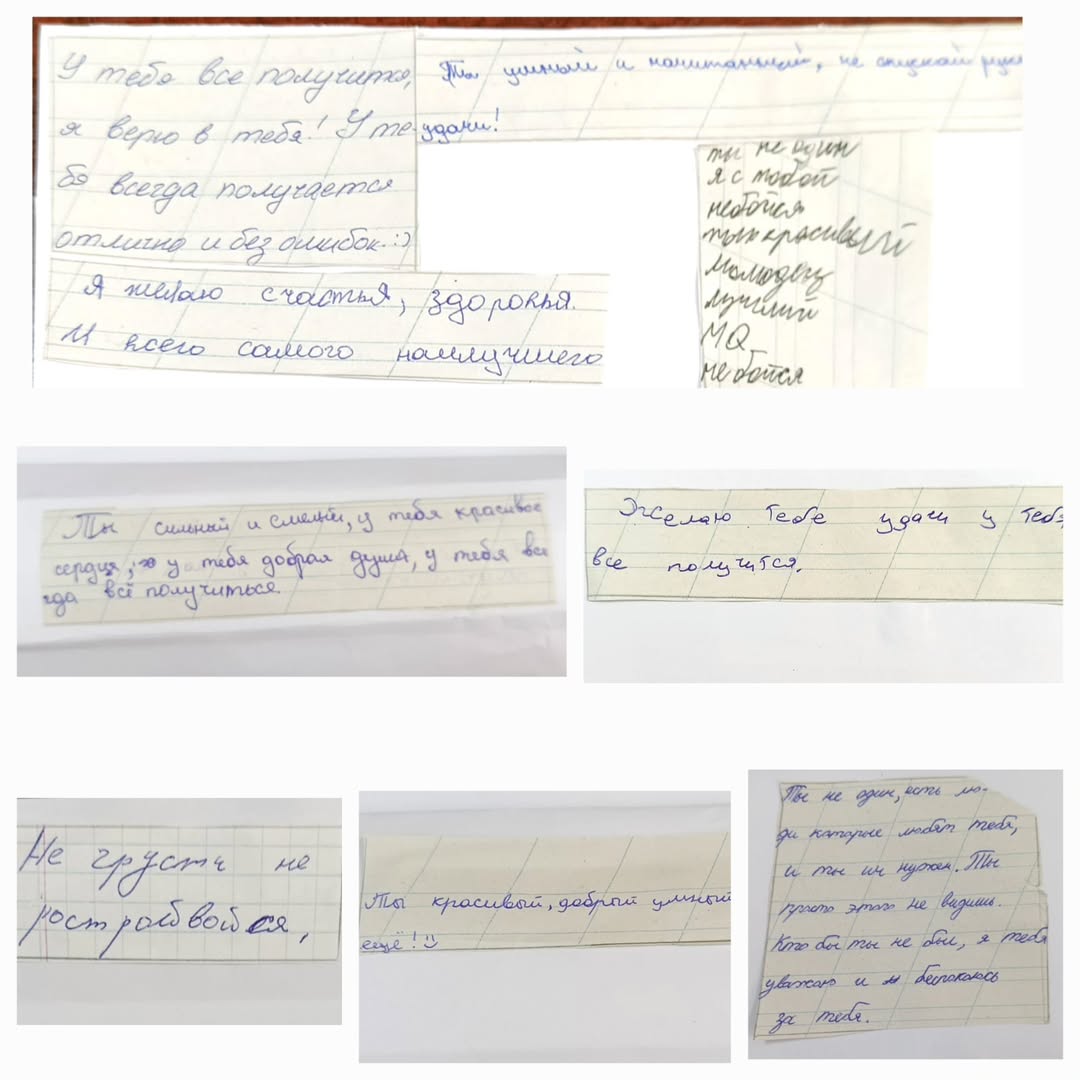 У тебя все получится,
я верю в тебя! У те-
бя всегда получается
отлично и без ошибок :)
Ты умный и начитанный, не опускай руки
удачи!
ты не один
я с тобой
небойся
тык красивый
молодец
лучший
MQ
не бойся
Я желаю счастья, здоровья.
И всего самого наилучшего
Ты сильный и смелый, у тебя красивое
сердце, у тебя добрая душа, у тебя все
гда всё получиться.
Желаю тебе удачи у тебя
все получится.
Не грусти не
Ты красивый, добрый умный
ещё!
Ты не один, есть лю-
ди которые любят тебя,
и ты им нужен. Ты
просто этого не видишь.
Кто бы ты не был, я тебя
уважаю и беспокоюсь
за тебя.